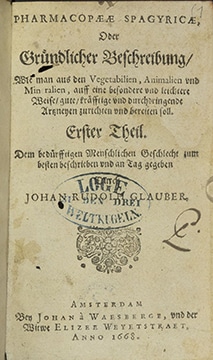 PHARMACOPÆÆ SPAGYRICÆ,
Oder
Gründlicher Beschreibung/
Wie man aus den Vegetabilien, Animalien und
Min ralien, auff eine besondere und leichtere
Weise/ gute/ kräfftige und durchdringende
Artzneyen zurichten und bereiten soll.
Erster Theil.
Dem bedürfftigen Menschlichen Geschlecht zum
besten beschrieben und an Tag gegeben
JOHAN RUDOLPH GLAUBER.
LOGE
ZU DEN DREI
WELTKUGELN.
AMSTERDAM
Bey JOHAN à WAESBERGE, und der
Witwe ELIZEE WEYETSTRAET,
ANNO 1668.